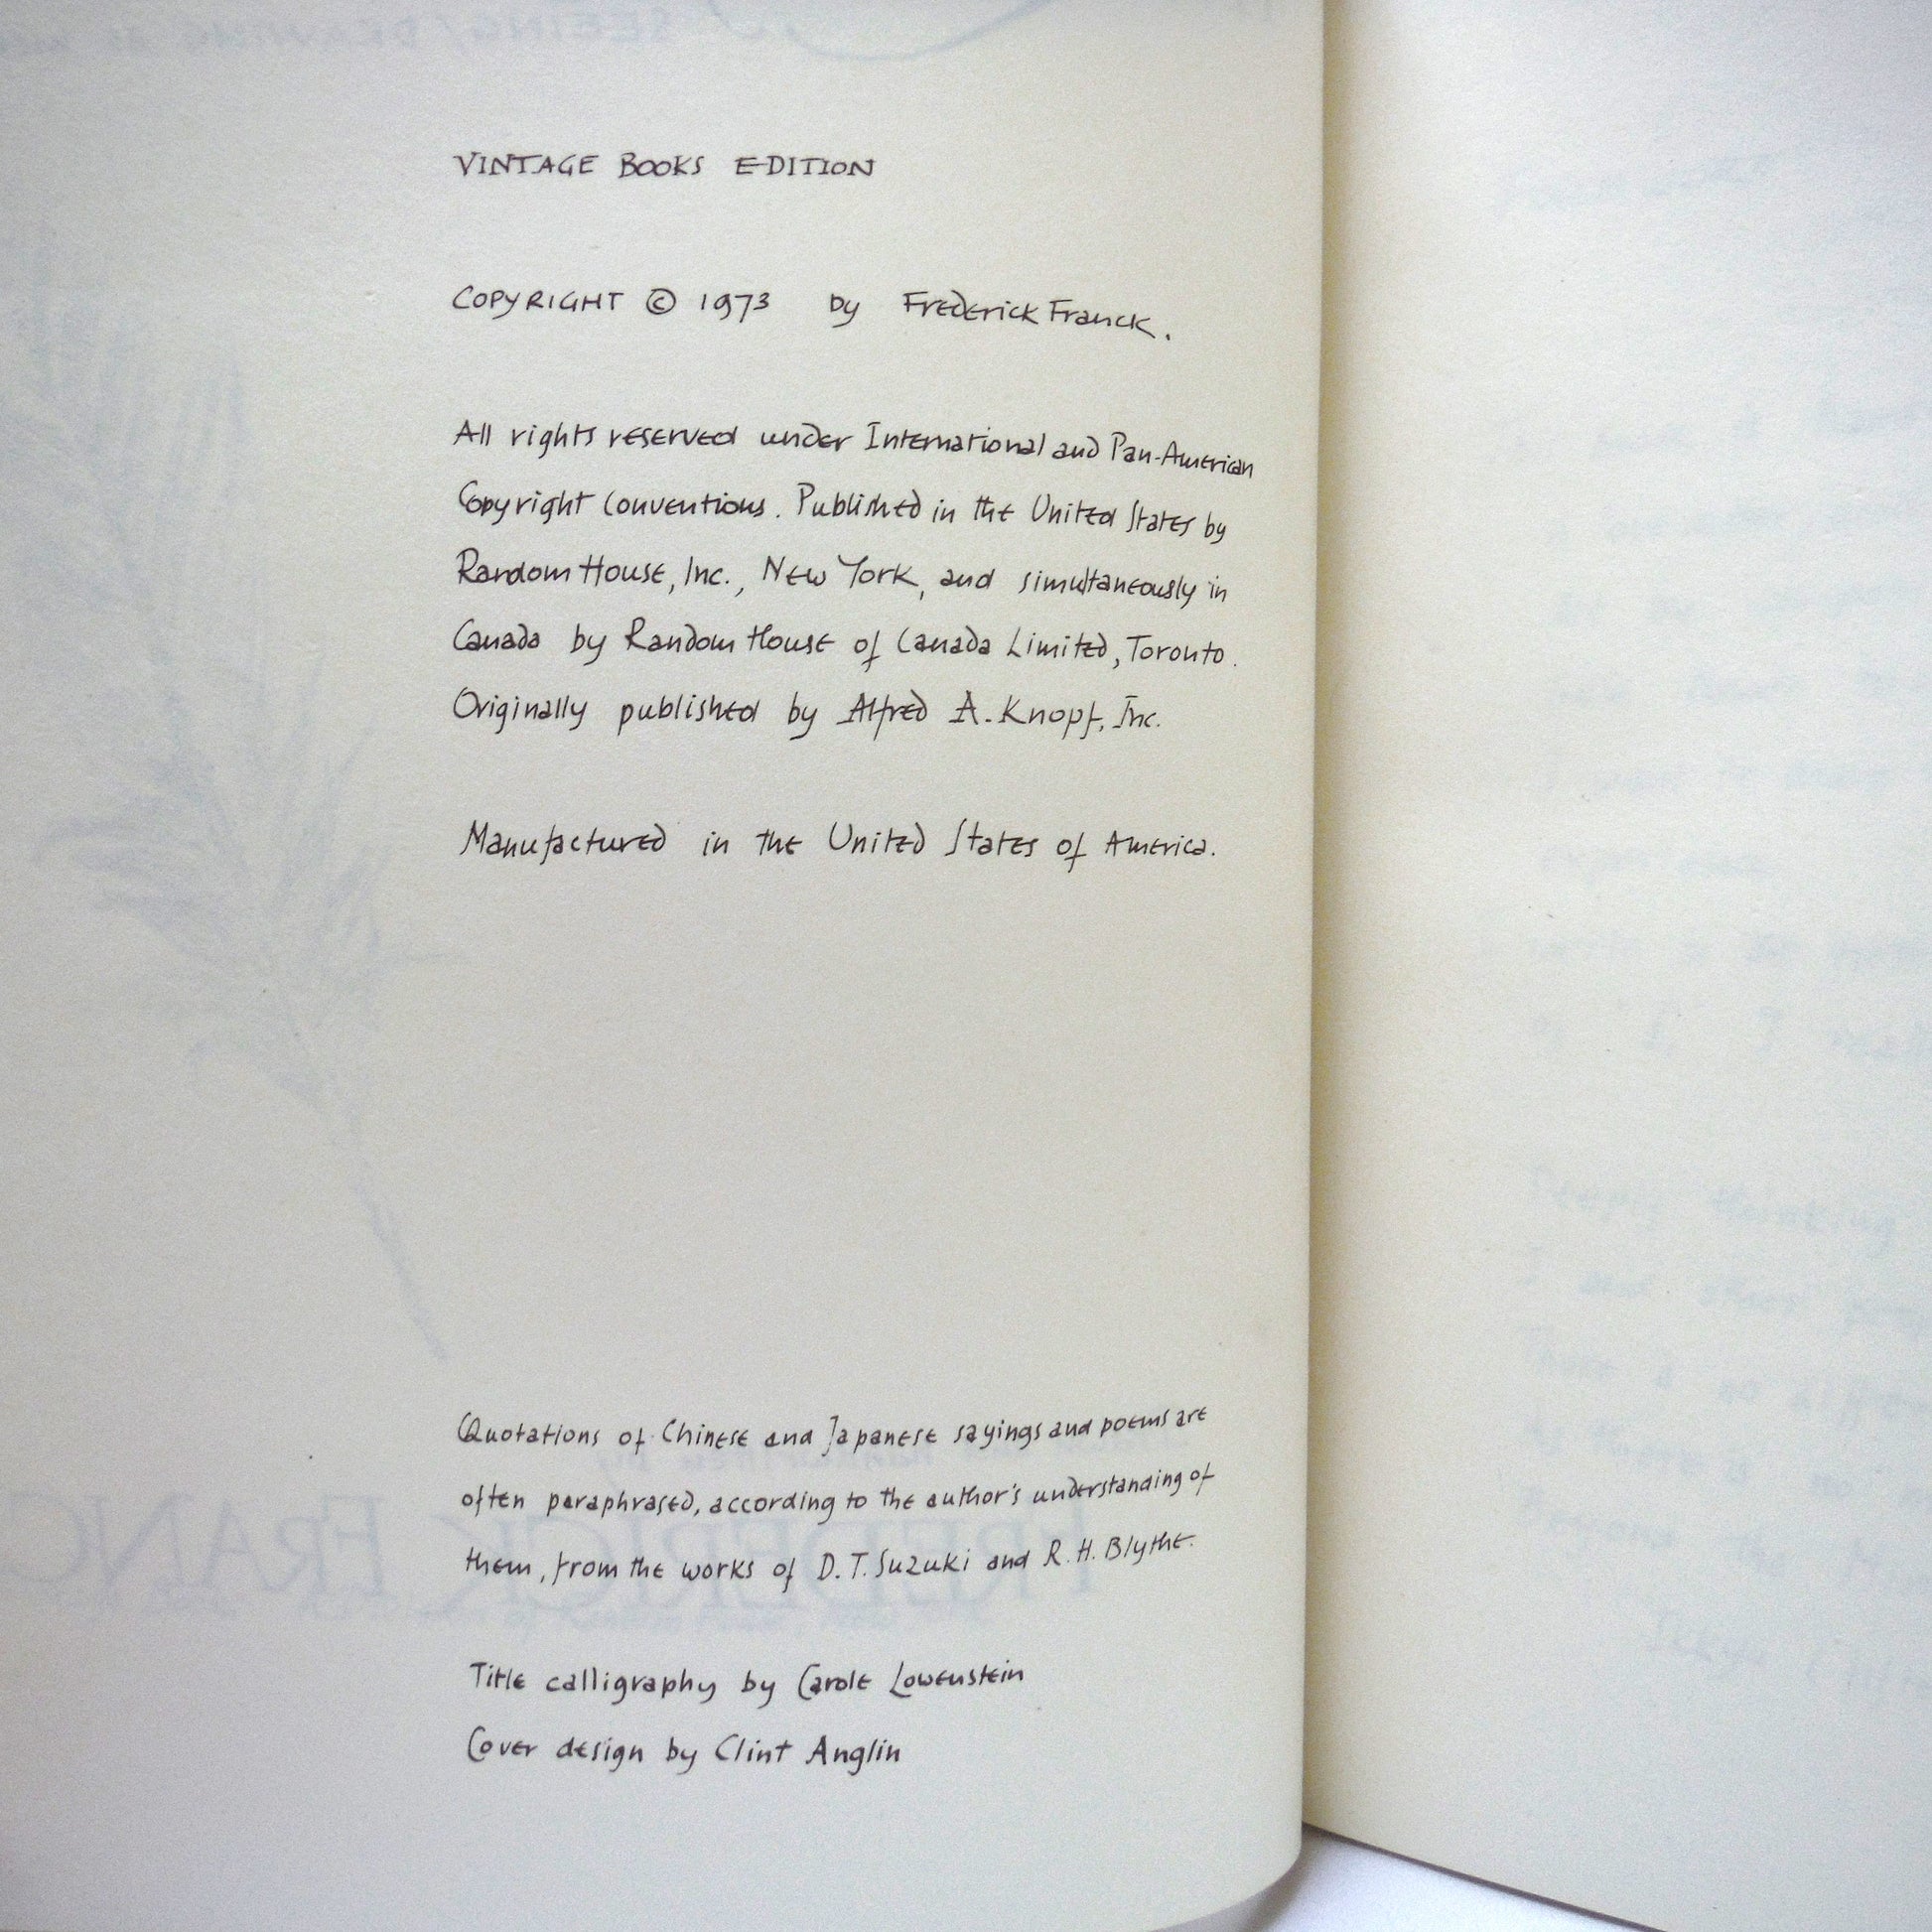 VINTAGE BOOKS EDITION
COPYRIGHT © 1973 by Frederick Franck.
All rights reserved under International and Pan-American
Copyright Conventions. Published in the United States by
Random House, Inc., New York, and simultaneously in
Canada by Random House of Canada Limited, Toronto.
Originally published by Alfred A. Knopf, Inc.
Manufactured in the United States of America.
Quotations of Chinese and Japanese sayings and poems are
often paraphrased, according to the author's understanding of
them, from the works of D.T. Suzuki and R.H. Blythe.
Title calligraphy by Carole Lowenstein
Cover design by Clint Anglin